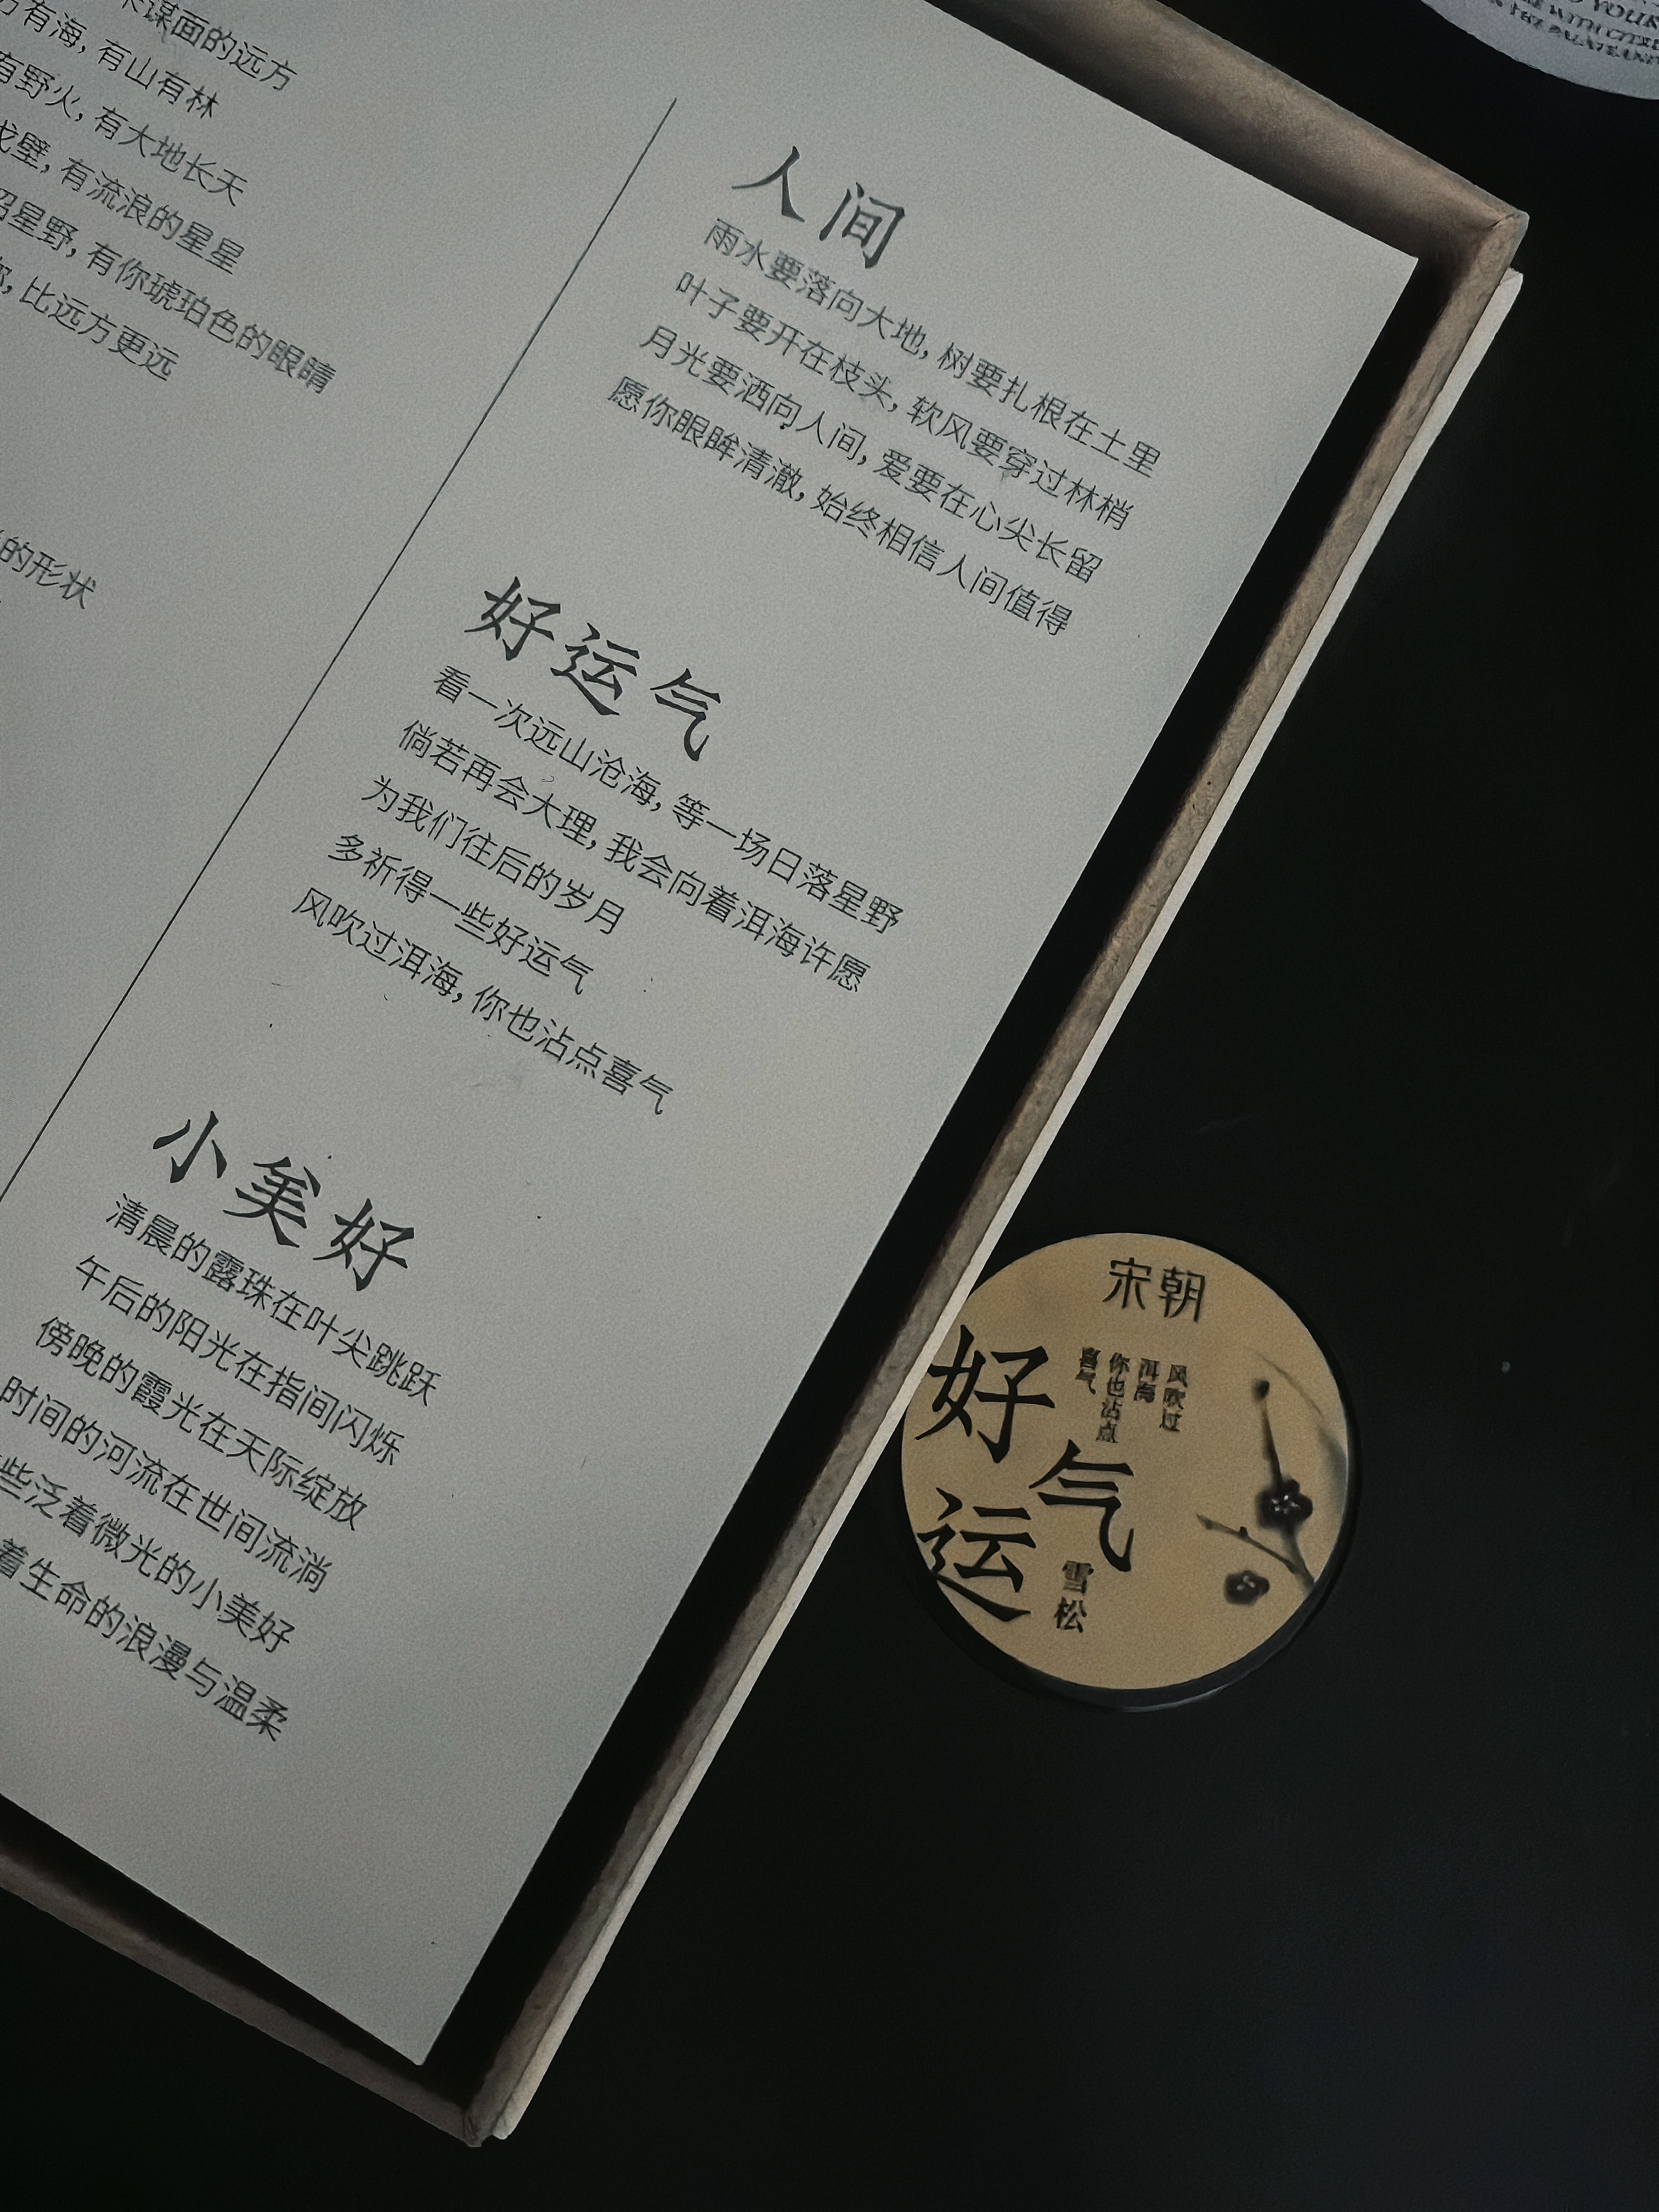 谋面的远方
有海，有山有林
有野火，有大地长天
戈壁，有流浪的星星
星野，有你琥珀色的眼睛
比远方更远
的形状
人间
雨水要落向大地，树要扎根在土里
叶子要开在枝头，软风要穿过林梢
月光要洒向人间，爱要在心尖长留
愿你眼眸清澈，始终相信人间值得
好运气
看一次远山沧海，等一场日落星野
倘若再会大理，我会向着洱海许愿
为我们往后的岁月
多祈得一些好运气
风吹过洱海，你也沾点喜气
小美好
清晨的露珠在叶尖跳跃
午后的阳光在指间闪烁
傍晚的霞光在天际绽放
时间的河流在世间流淌
些泛着微光的小美好
着生命的浪漫与温柔
宋朝
好运气
风吹过
洱海
你也沾点
喜气
雪松
YOUR
WITH
THE